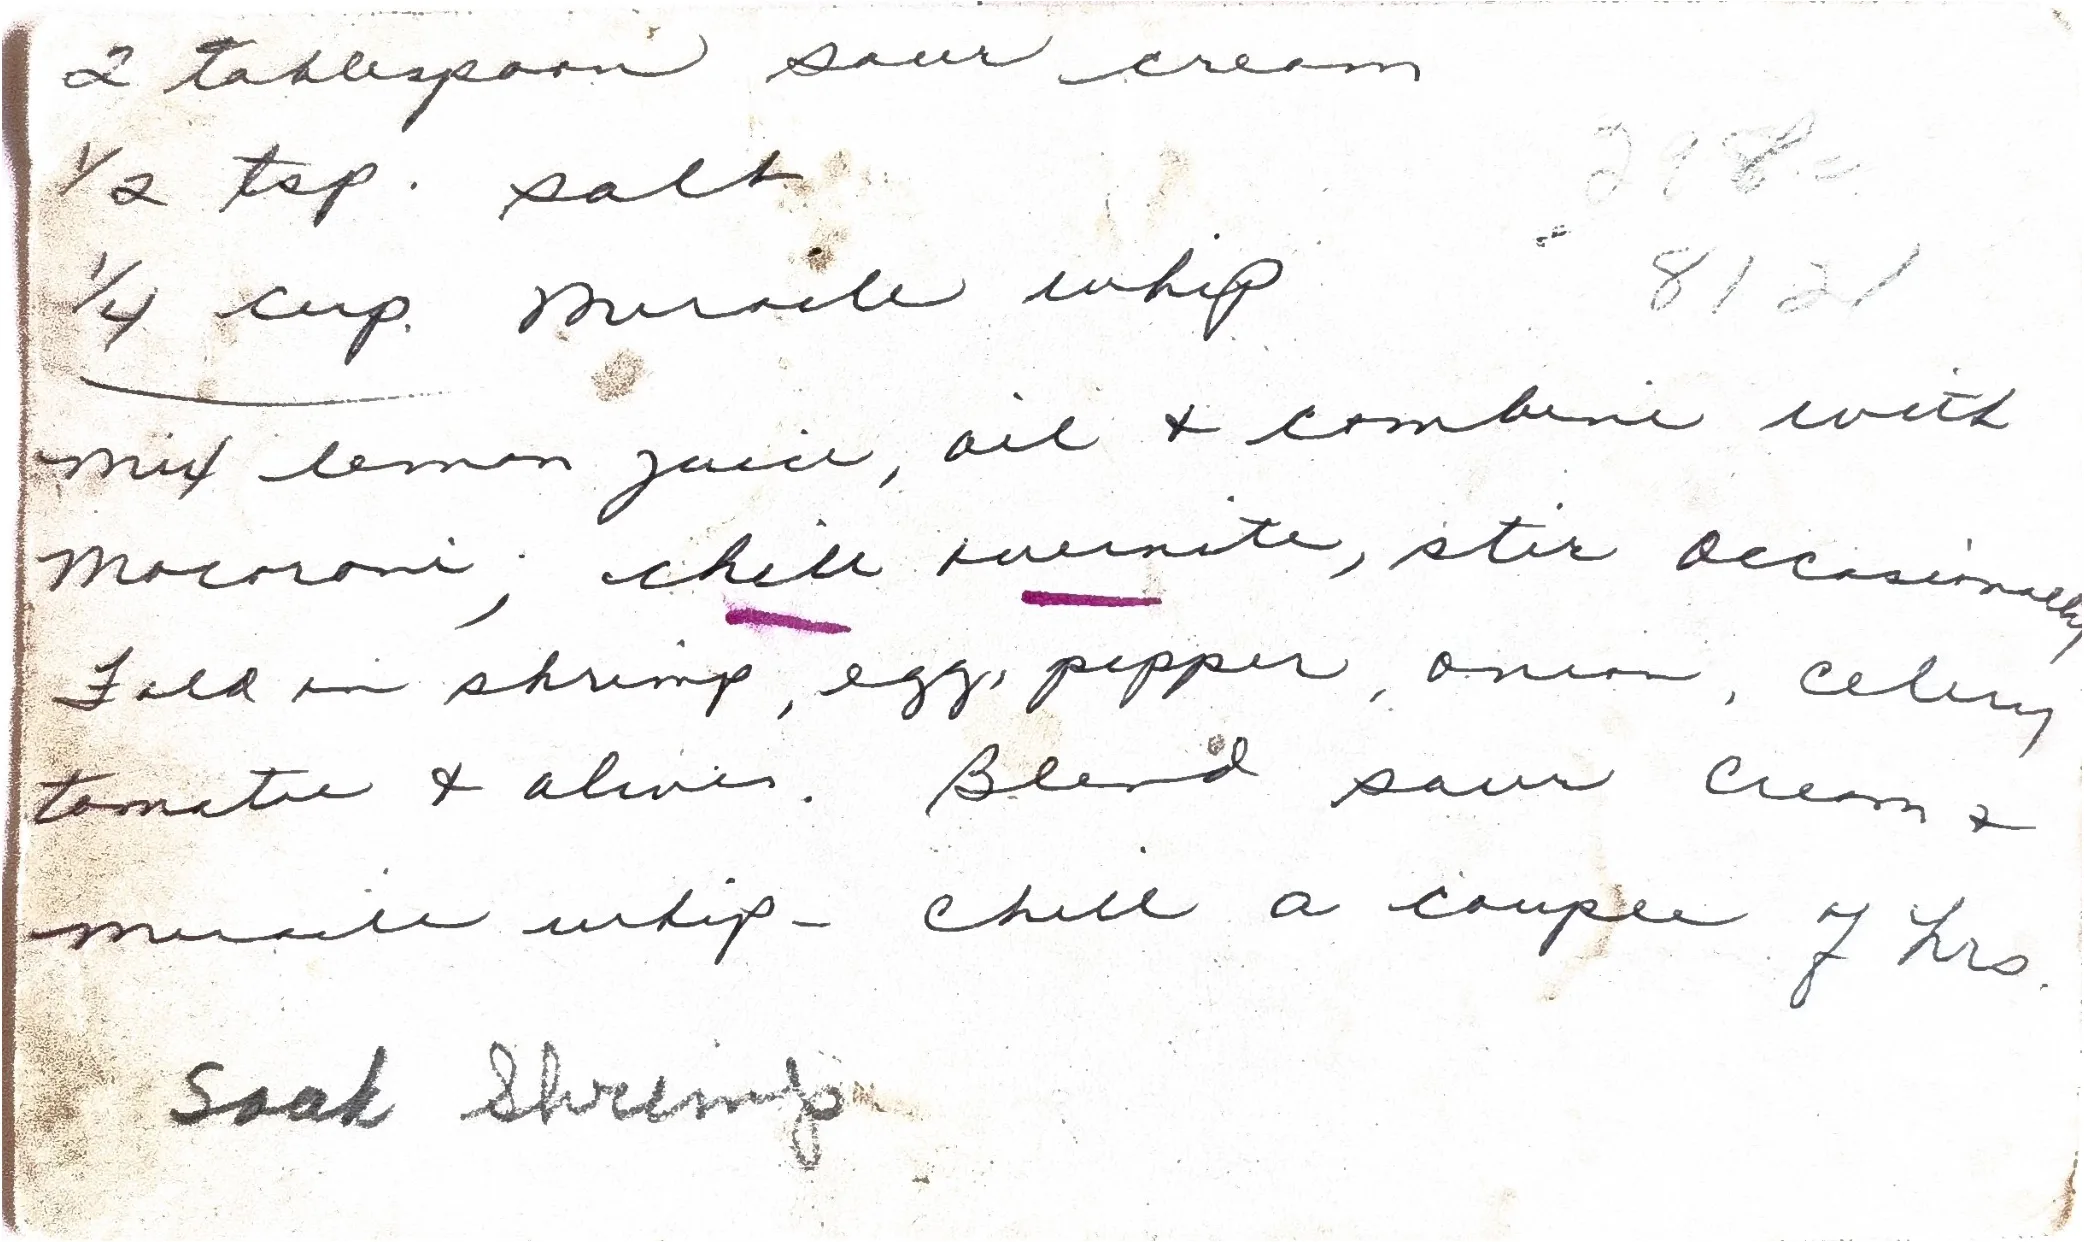 2 tablespoon sour cream
1/2 tsp. salt
1/4 cup. Miracle whip
8121
Mix lemon juice, oil & combine with
Macaroni; chill overnite, stir occasionally
Fold in shrimp, egg, pepper, onion, celery
tomatoe & olives. Blend sour cream &
miracle whip - chill a couple of hrs.
Soak Shrimp